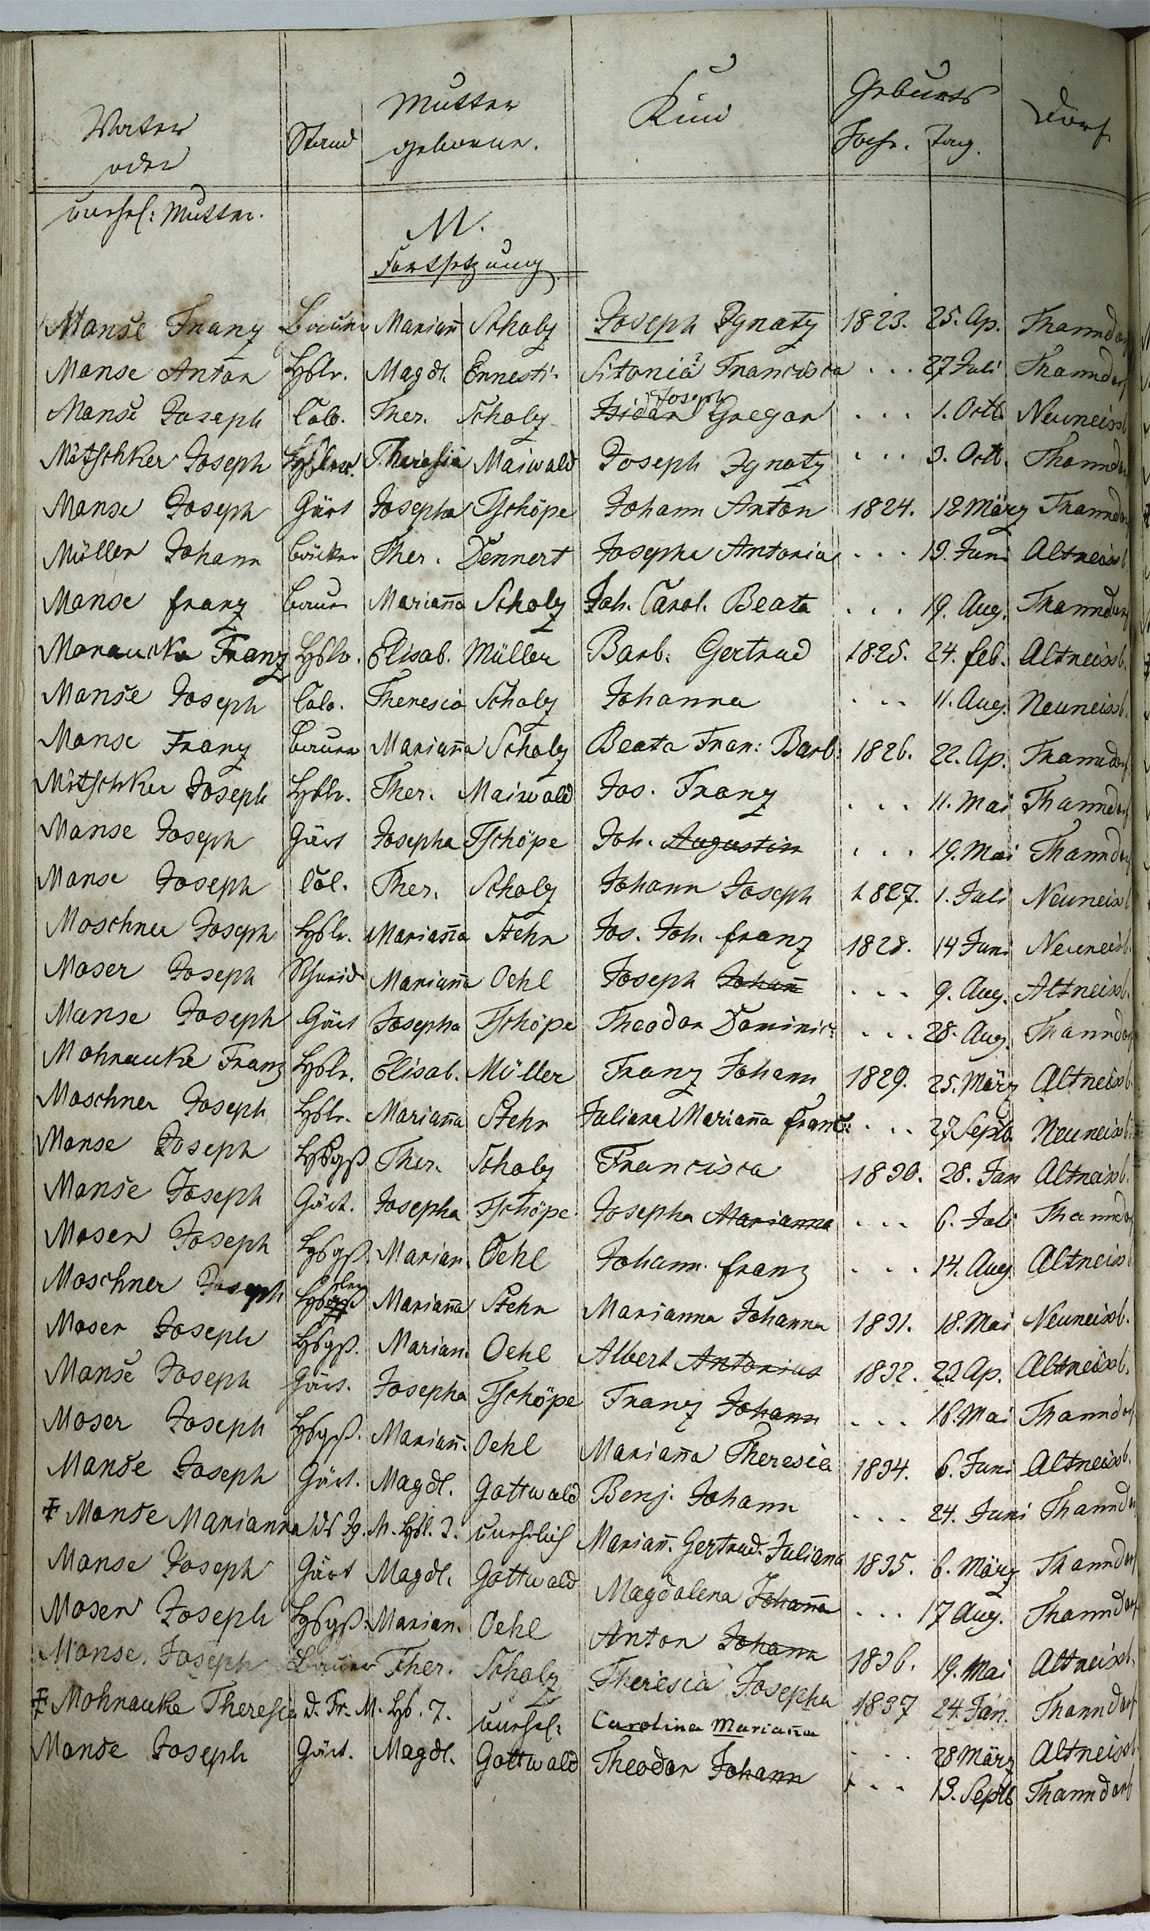 Vater Stand Mutter Kind Geburts Dorf
oder geborne. Jahr. Tag.
unehel: Mutter.
M.
Fortsetzung.
Manse Franz Bauer Mariañ Scholz Joseph Ignatz 1823. 25. Ap. Thanndorf
Manse Anton Hßlr. Magdl. Ernesti. Sitonia Francisca . . . 27 Juli Thanndorf
Manse Joseph Colo. Ther. Scholz Isidor Joseph Gregor . . . 1. Octb. Neuneissb
Mitschker Joseph Hßler. Theresia Maiwald Joseph Ignatz . . . 3. Octb. Thanndorf
Manse Joseph Gärt Josepha Tschöpe Johann Anton 1824. 12 März Thanndorf
Müller Johann Bäcker Ther. Dennert Josepha Antonia . . . 13. Juni Altneissb
Manse Franz Bauer Mariaña Scholz Joh. Carol. Beata . . . 19. Aug. Thanndorf
Maraucke Franz Hßlr. Elisab. Müller Barb. Gertrud 1825. 24. Feb. Altneissb.
Manse Joseph Colo. Theresia Scholz Johanna . . . 11. Aug. Neuneissb.
Manse Franz Bauer Mariaña Scholz Beata Fran: Barb: 1826. 22. Ap. Thanndorf
Mitschker Joseph Hßlr. Ther. Maiwald Jos. Franz . . . 11. Mai Thanndorf
Manse Joseph Gärt Josepha Tschöpe Joh. Augustin . . . 19. Mai Thanndorf
Manse Joseph Col. Ther. Scholz Johann Joseph 1827. 1. Juli Neuneissb
Moschner Joseph Hßlr. Mariaña Stehr Jos. Joh. Franz 1828. 14 Juni Neuneissb.
Moser Joseph Schmid Mariaña Oehl Joseph Johañ . . . 9. Aug. Altneissb.
Manse Joseph Gärt Josepha Tschöpe Theodor Dominic: . . . 28. Aug. Thanndorf
Mohraucke Franz Hßlr. Elisab. Müller Franz Johann 1829. 25. März Altneissb.
Moschner Joseph Hßlr. Mariaña Stehr Juliana Mariaña Franc: . . . 27. Septb. Neuneissb.
Manse Joseph Hßgß Ther. Scholz Francisca 1830. 28. Jan Altneissb.
Manse Joseph Gärt. Josepha Tschöpe Josepha Marianna . . . 6. Juli Thanndorf
Moser Joseph Hßgß. Marian. Oehl Johann Franz . . . 14. Aug Altneissb
Moschner Joseph Hßler Mariaña Stehr Marianna Johanna 1831. 18. Mai Neuneissb.
Moser Joseph Hßgß. Marian. Oehl Albert Antonius 1832. 23. Ap. Altneissb.
Manse Joseph Gärt. Josepha Tschöpe Franz Johann . . . 16. Mai Thanndorf
Moser Joseph Hßgß. Mariañ. Oehl Mariaña Theresia 1834. 6. Juni Altneissb.
Manse Joseph Gärt. Magdl. Gottwald Benj. Johann . . . 24. Juni Thanndorf
‡ Manse Marianna M. Hßl. T. unehelich Mariañ. Gertrud. Juliana 1835. 6. März Thanndorf
Manse Joseph Gärt Magdl. Gottwald Magdalena Johaña . . . 17 Aug. Thanndorf
Moser Joseph Hßgß. Marian. Oehl Anton Johann 1836. 19. Mai Altneissb.
Manse Joseph Bauer Ther. Scholz Theresia Josepha 1837 24. Jan. Thanndorf
‡ Mohraucke Theresia d. Fr. M. Hß. T. unehel: Carolina Mariaña . . . 28 März Altneissb
Manse Joseph Gärt. Magdl. Gottwald Theodor Johann . . . 13. Septb Thanndorf